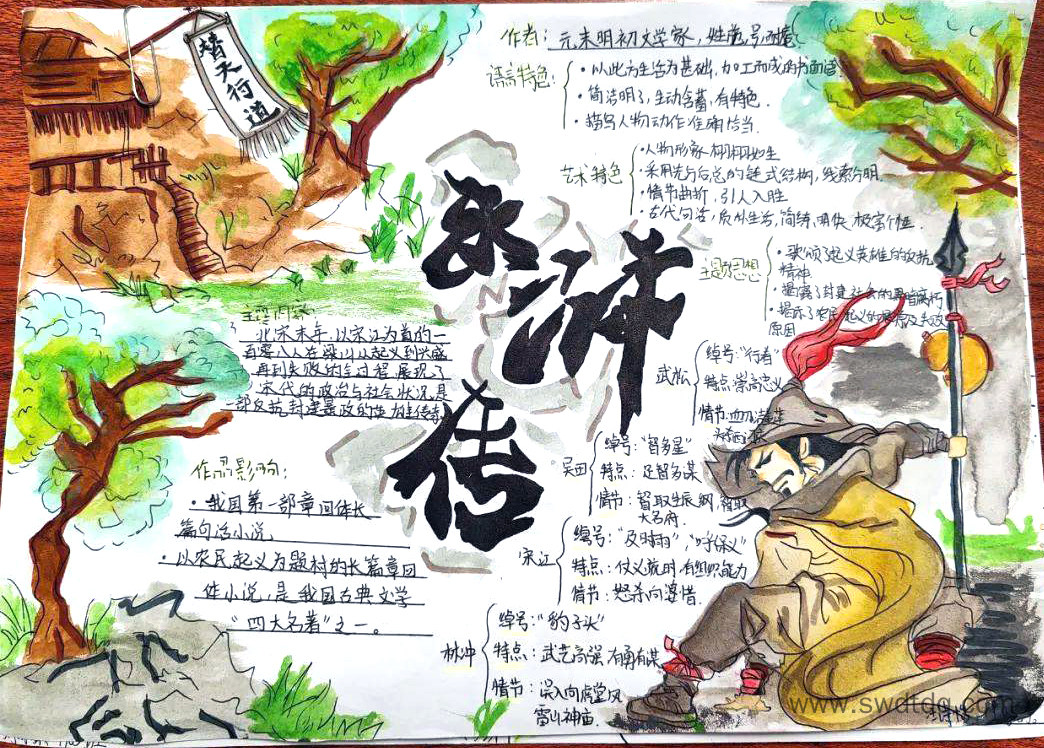 替天行道
水浒传
作者：元末明初文学家，姓施，号耐庵
语言特色：
·以此为生活为基础，加工而成的书面语
·简洁明了，生动含蓄，有特色.
·描写人物动作准确恰当.
艺术特色
·人物形象栩栩如生
·采用先分后总的链式结构，线索分明.
·情节曲折，引人入胜
主题思想
·歌颂了起义英雄的反抗
精神
·揭露了封建社会的黑暗腐朽
原因
主要内容
北宋末年，以宋江为首的一
百零八人在梁山从起义到兴盛
再到失败的全过程，展现了
宋代的政治与社会状况，是
作品影响：
·我国第一部章回体长
篇白话小说
·以农民起义为题材的长篇章回
体小说，是我国古典文学
“四大名著”之一。
武松
绰号：“行者”
特点：崇高忠义
吴用
绰号：“智多星”
特点：足智多谋
情节：智取生辰纲，智取
大名府.
宋江
绰号：“及时雨”，“呼保义”
特点：仗义疏明，有组织能力
情节：怒杀阎婆惜.
林冲
绰号：“豹子头”
特点：武艺高强，有勇有谋
情节：误入白虎堂，风
雪山神庙.
www.swdtdq.com